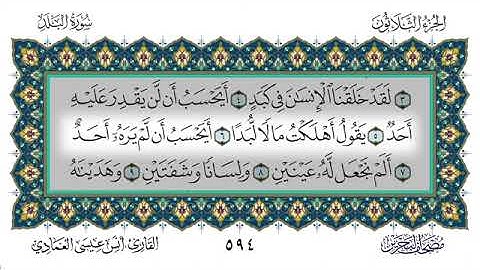 الجزء الثلاثون
سورة البلد
٣ لَقَدْ خَلَقْنَا ٱلْإِنسَٰنَ فِى كَبَدٍ ٤ أَيَحْسَبُ أَن لَّن يَقْدِرَ عَلَيْهِ
أَحَدٌ ٥ يَقُولُ أَهْلَكْتُ مَالًا لُّبَدًا ٦ أَيَحْسَبُ أَن لَّمْ يَرَهُۥٓ أَحَدٌ
٧ أَلَمْ نَجْعَل لَّهُۥ عَيْنَيْنِ ٨ وَلِسَانًا وَشَفَتَيْنِ ٩ وَهَدَيْنَٰهُ
٥٩٤
القارئ أنس عيسى العمادي